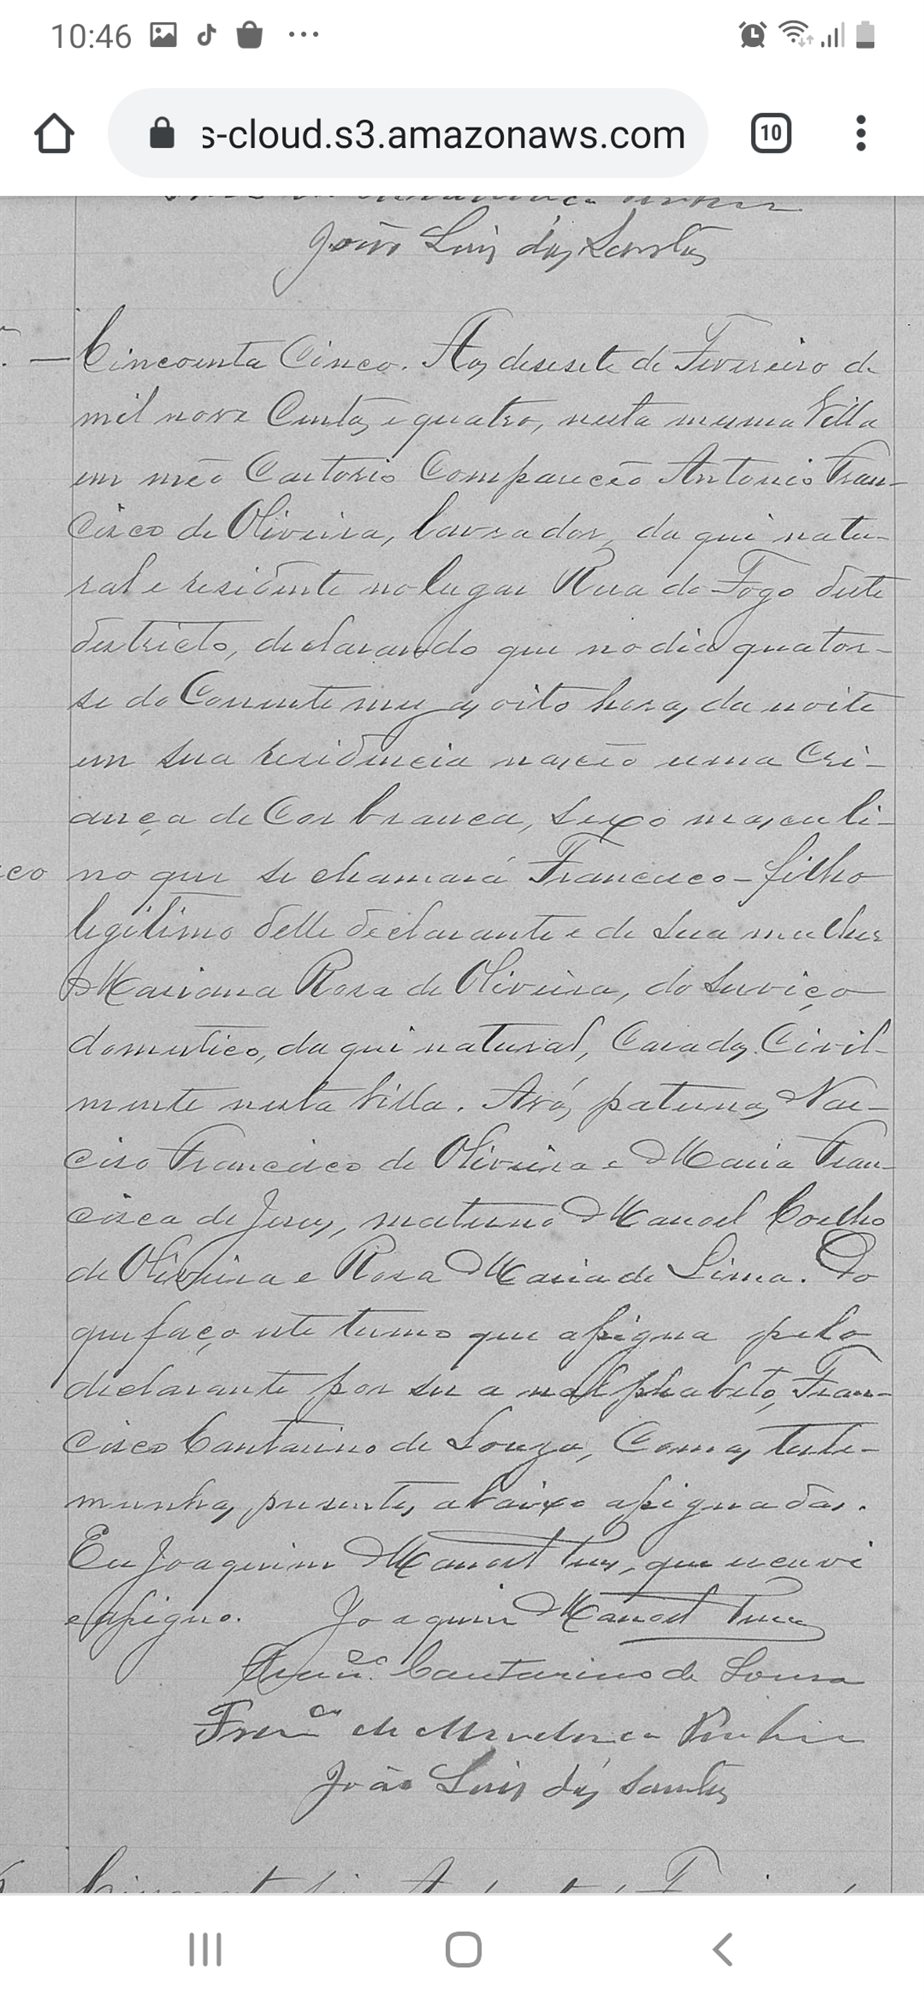 10:46
s-cloud.s3.amazonaws.com
10
João Luis dos Santos
Cincoenta Cinco. Aos desesete de Fevereiro de
mil nove Centos e quatro, nesta mesma Villa
em meo Cartorio Compareceo Antonio Fran-
cisco de Oliveira, lavrador, da qui natu-
ral e residente no lugar Rua do Fogo deste
destricto, declarando que no dia quator-
se do Corrente mez as oito horas da noite
em sua residencia nasceo uma Cri-
ança de Cor branca, sexo masculi-
ço no que se chamará Francisco - filho
legitimo delle declarante e de sua mulher
Mariana Rosa de Oliveira, do serviço
domestico, da qui natural, Casados Civil-
mente nesta Villa. Avós paternos Nar-
ciso Francisco de Oliveira e Maria Fran-
cisca de Jesus, materno Manoel Coelho
de Oliveira e Rosa Maria de Lima. Do
que faço este termo que assigna pelo
declarante por ser analphabeto, Fran-
cisco Cantarino de Souza, Com as teste-
munhas presentes abaixo assignadas.
Eu Joaquim Manoel que escrevi
e assigno. Joaquim Manoel
Cantarino de Sousa
Franco de Mendonca
João Luis dos Santos